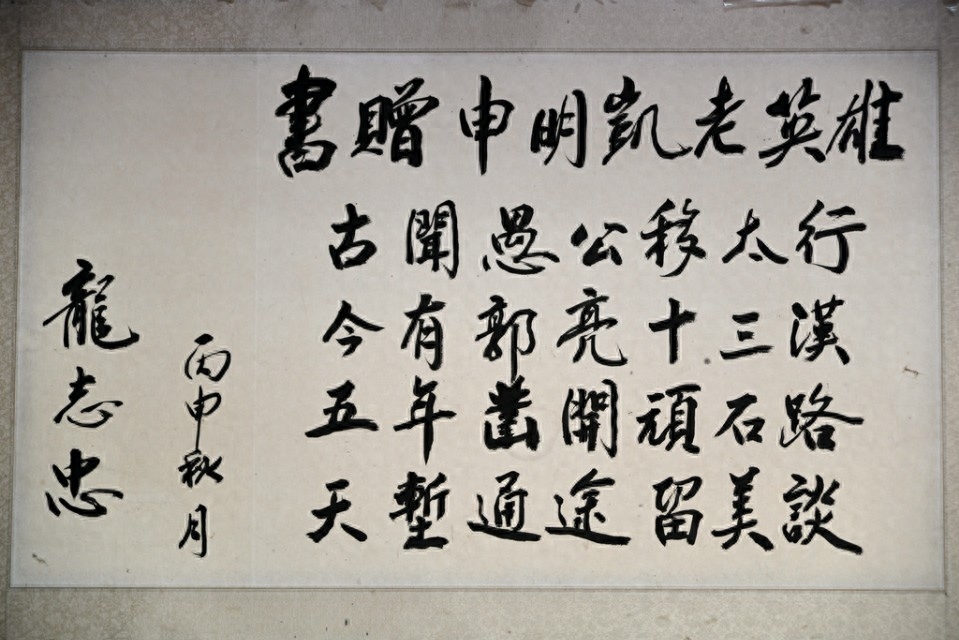 書贈申明凱老英雄
古聞愚公移太行
今有郭亮十三漢
五年鑿開頑石路
天塹通途留美談
丙申秋月
龍志忠